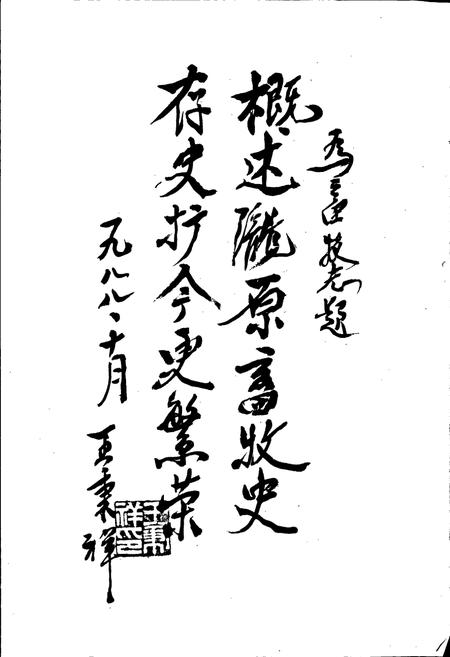 为畜牧志题
概述陇原畜牧史
存史扩今更繁荣
一九八八、十月
王秉祥
王秉祥印